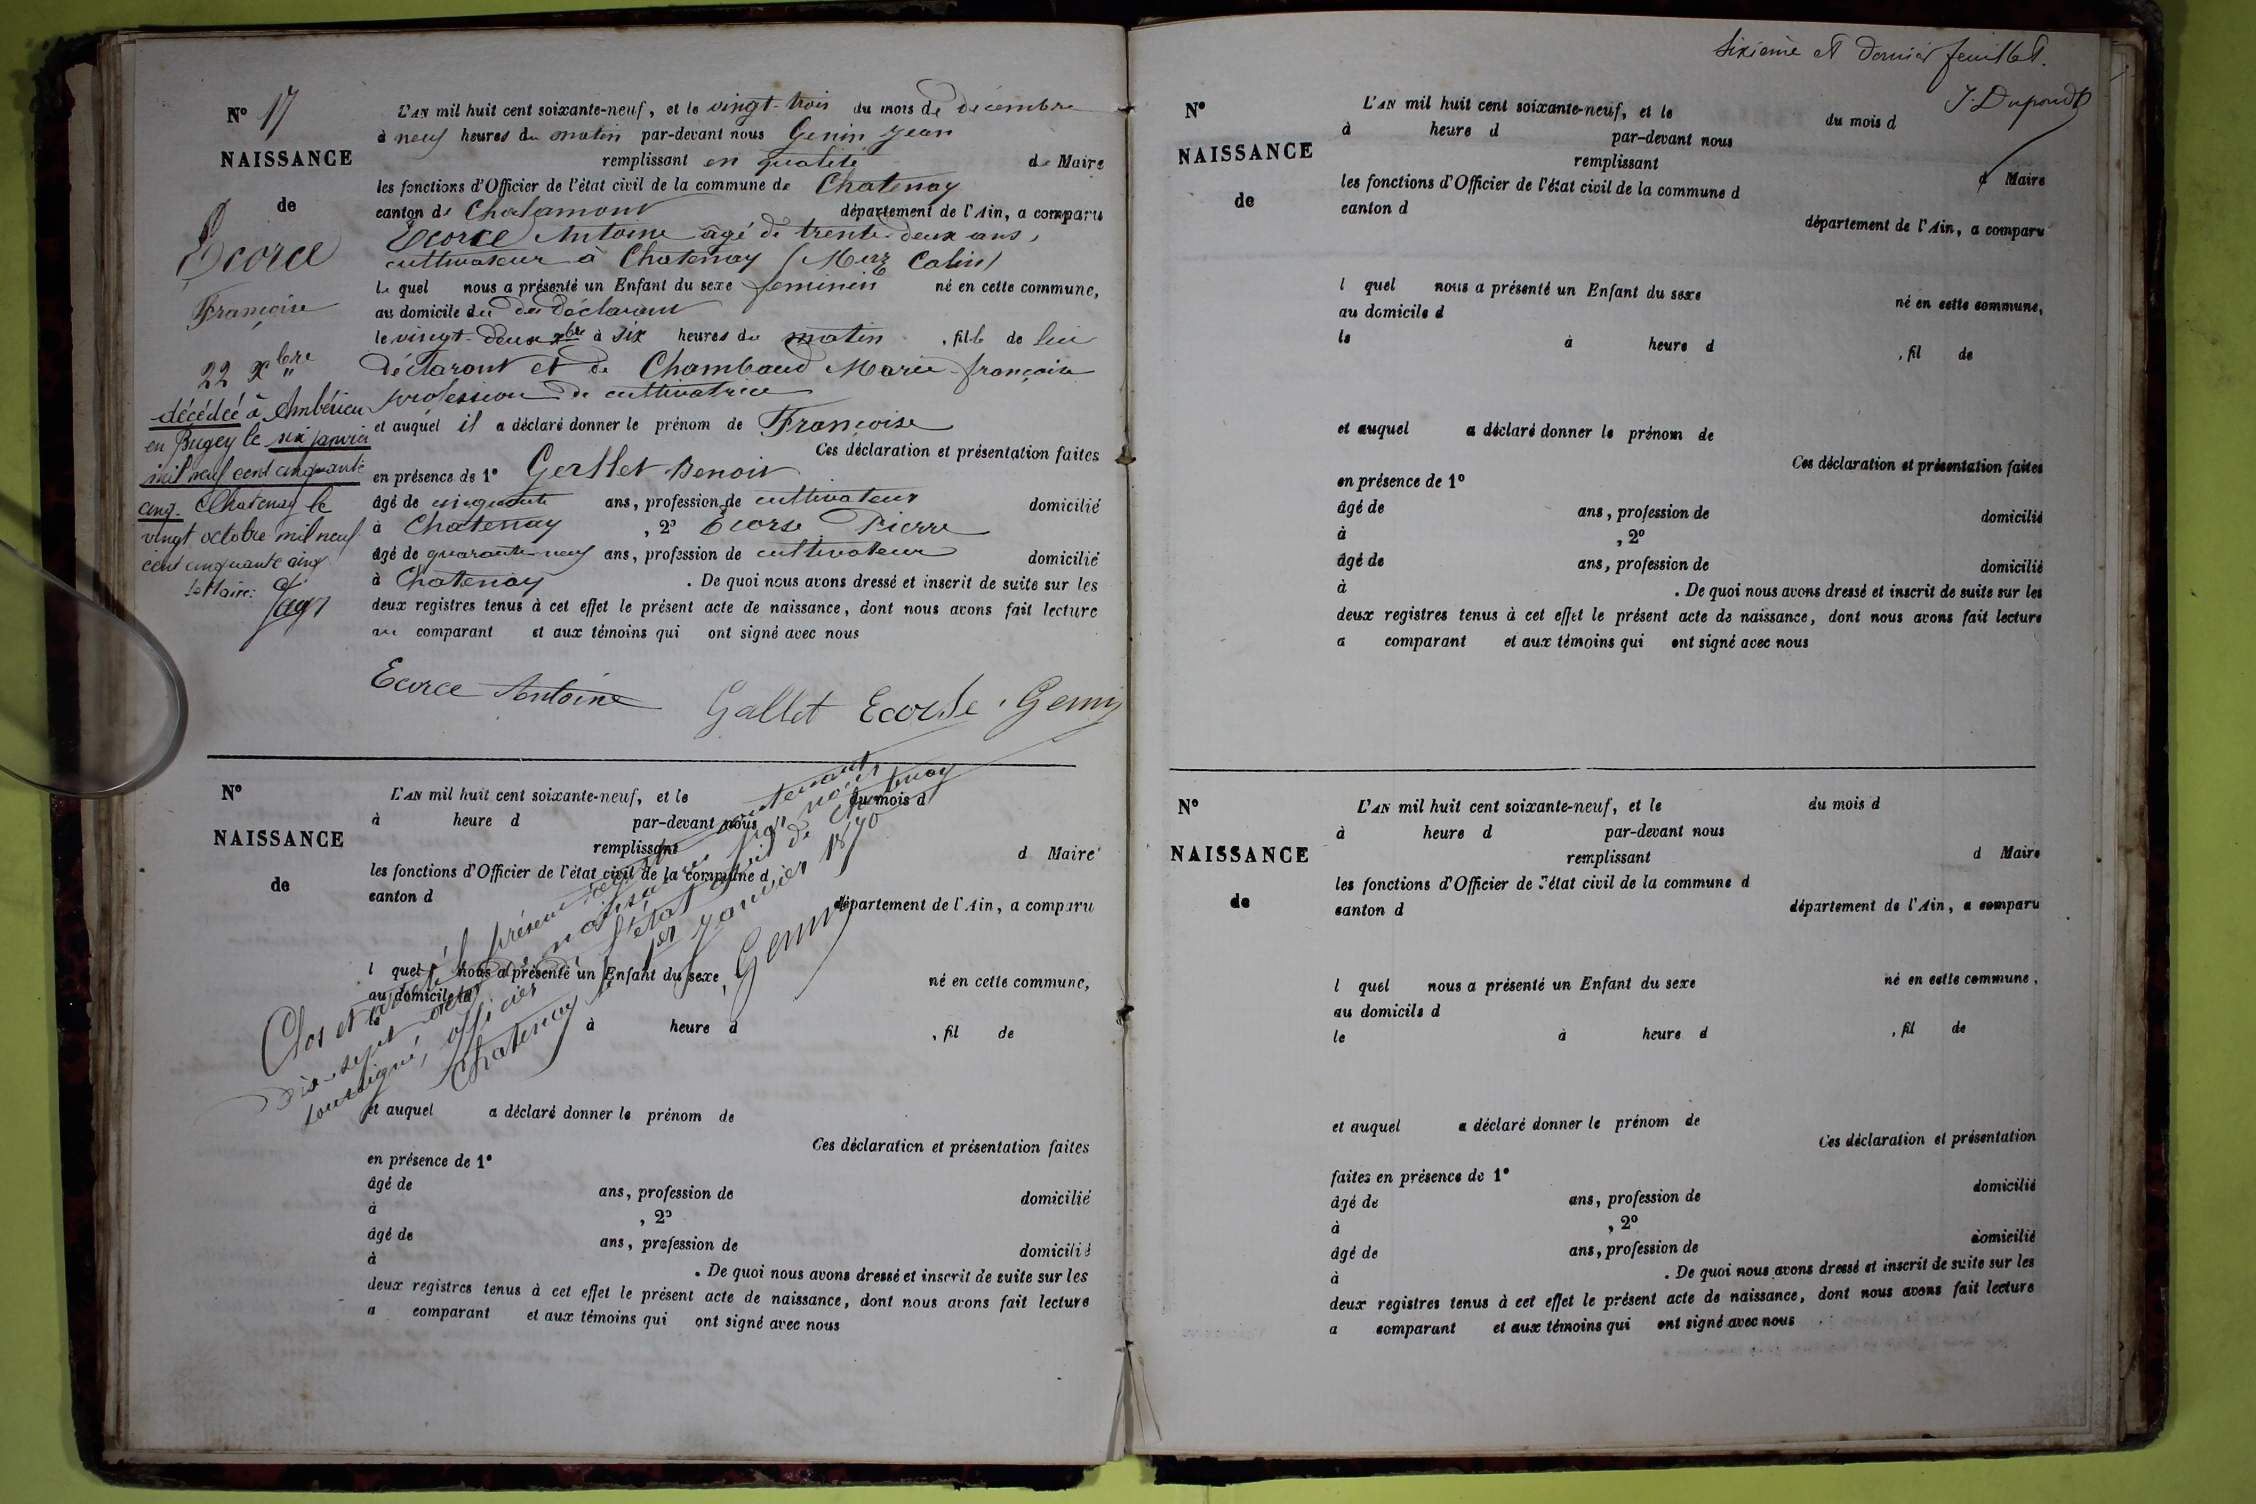 N° 17
NAISSANCE
de
Ecorce
Françoise
22 Xbre
décédée à Ambérieu
en Bugey le six janvier
mil neuf cent cinquante
cinq. Chatenay le
vingt octobre mil neuf
cent cinquante cinq
Le Maire:
L'AN mil huit cent soixante-neuf, et le vingt-trois du mois de décembre
à neuf heures du matin par-devant nous Genin Jean
remplissant en qualité de Maire
les fonctions d'Officier de l'état civil de la commune de Chatenay
canton de Chalamont département de l'Ain, a comparu
Ecorce Antoine âgé de trente-deux ans,
cultivateur à Chatenay
le quel nous a présenté un Enfant du sexe feminin né en cette commune,
au domicile du dit déclarant
le vingt-deux xbre à six heures du matin, fille de lui
déclarant et de Chambaud Marie-françoise
profession de cultivatrice
et auquel il a déclaré donner le prénom de Françoise
Ces déclaration et présentation faites
en présence de 1° Benoit
âgé de cinquante ans, profession de cultivateur domicilié
à Chatenay, 2° Ecorse Pierre
âgé de quarante-neuf ans, profession de cultivateur domicilié
à Chatenay. De quoi nous avons dressé et inscrit de suite sur les
deux registres tenus à cet effet le présent acte de naissance, dont nous avons fait lecture
au comparant et aux témoins qui ont signé avec nous
Ecorce Antoine Gallet Ecorse Genin
N°
NAISSANCE
de
L'AN mil huit cent soixante-neuf, et le du mois d
à heure d par-devant nous
remplissant d Maire
les fonctions d'Officier de l'état civil de la commune d
canton d département de l'Ain, a comparu
l quel nous a présenté un Enfant du sexe né en cette commune,
au domicile d
le à heure d , fil de
et auquel a déclaré donner le prénom de
Ces déclaration et présentation faites
en présence de 1°
âgé de ans, profession de domicilié
à , 2°
âgé de ans, profession de domicilié
à . De quoi nous avons dressé et inscrit de suite sur les
deux registres tenus à cet effet le présent acte de naissance, dont nous avons fait lecture
a comparant et aux témoins qui ont signé avec nous
Clos et arrêté le présent registre contenant
dix-sept actes de naissances par nous
soussigné, officier de l'état civil de Chatenay
Chatenay le 1er Janvier 1870
Genin
Sixième et dernier feuillet.
J. Dupond
N°
NAISSANCE
de
L'AN mil huit cent soixante-neuf, et le du mois d
à heure d par-devant nous
remplissant d Maire
les fonctions d'Officier de l'état civil de la commune d
canton d département de l'Ain, a comparu
l quel nous a présenté un Enfant du sexe né en cette commune,
au domicile d
le à heure d , fil de
et auquel a déclaré donner le prénom de
Ces déclaration et présentation faites
en présence de 1°
âgé de ans, profession de domicilié
à , 2°
âgé de ans, profession de domicilié
à . De quoi nous avons dressé et inscrit de suite sur les
deux registres tenus à cet effet le présent acte de naissance, dont nous avons fait lecture
a comparant et aux témoins qui ont signé avec nous
N°
NAISSANCE
de
L'AN mil huit cent soixante-neuf, et le du mois d
à heure d par-devant nous
remplissant d Maire
les fonctions d'Officier de l'état civil de la commune d
canton d département de l'Ain, a comparu
l quel nous a présenté un Enfant du sexe né en cette commune,
au domicile d
le à heure d , fil de
et auquel a déclaré donner le prénom de
Ces déclaration et présentation
faites en présence de 1°
âgé de ans, profession de domicilié
à , 2°
âgé de ans, profession de domicilié
à . De quoi nous avons dressé et inscrit de suite sur les
deux registres tenus à cet effet le présent acte de naissance, dont nous avons fait lecture
a comparant et aux témoins qui ont signé avec nous